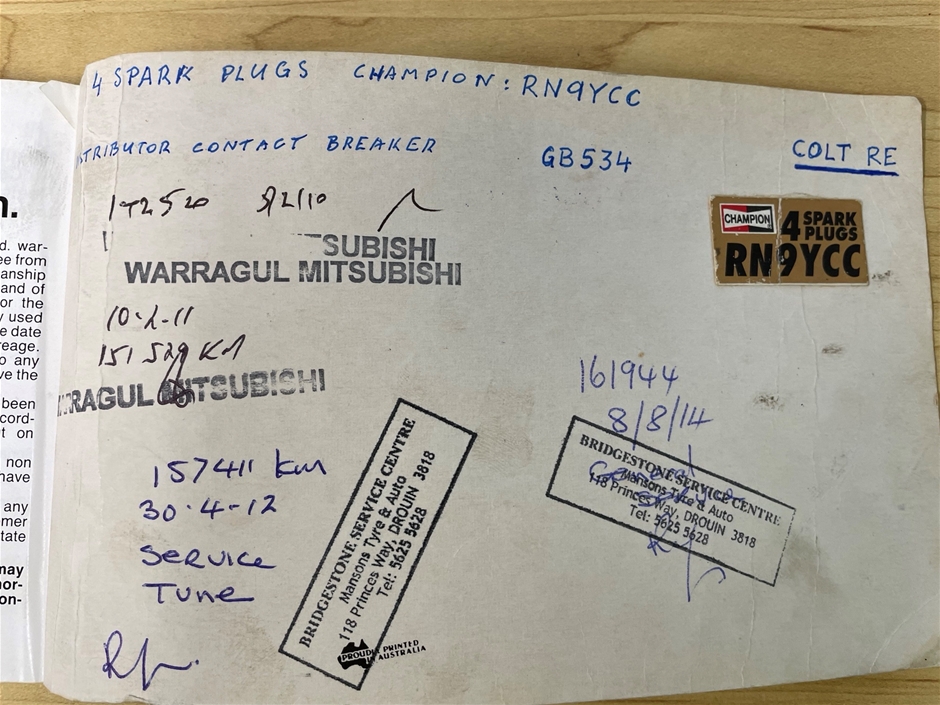 4 SPARK PLUGS CHAMPION: RN9YCC
STRIBUTOR CONTACT BREAKER GB534 COLT RE
CHAMPION
4 SPARK
PLUGS
RN9YCC
SUBISHI
WARRAGUL MITSUBISHI
10.2.11
151 529 KM
RRAGUL MITSUBISHI
157411 km
30.4-12
Service
Tune
BRIDGESTONE SERVICE CENTRE
Mansons Tyre & Auto
118 Princes Way, DROUIN 3818
Tel: 5625 5628
PROUDLY PRINTED
IN AUSTRALIA
161944
8/8/14
BRIDGESTONE SERVICE CENTRE
Mansons Tyre & Auto
118 Princes Way, DROUIN 3818
Tel: 5625 5628
n.
d. war-
ee from
anship
and of
or the
y used
e date
reage.
o any
ve the
been
cord-
t on
non
have
any
mer
tate
may
nor-
on-